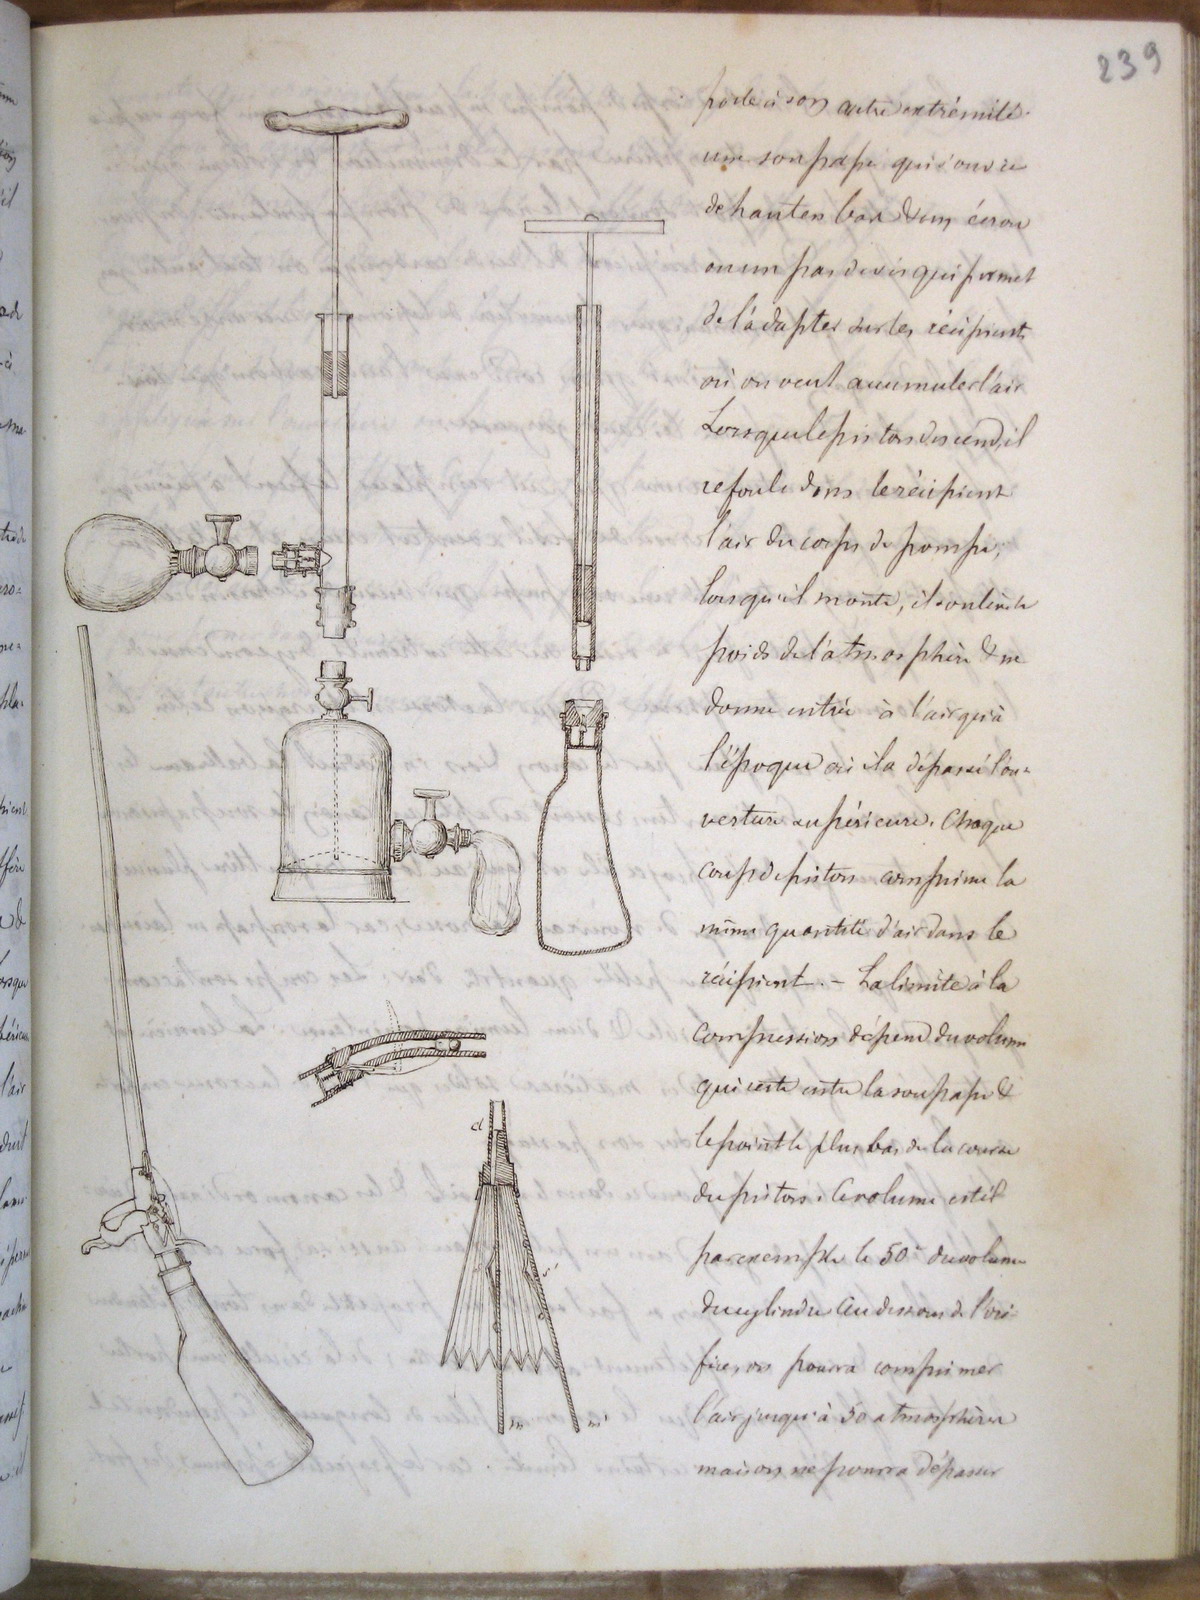 239
porte à son autre extrémité
une soupape qui s'ouvre
de haut en bas & un écrou
ou un pas de vis qui permet
de l'adapter sur les récipients
où on veut accumuler l'air
Lorsque le piston descend, il
refoule dans le récipient
l'air du corps de pompe,
lorsqu'il monte, il soulève le
poids de l'atmosphère & ne
donne entrée à l'air qu'à
l'époque où il a dépassé l'ou-
verture supérieure. Chaque
coup de piston comprime la
même quantité d'air dans le
récipient. - La limite à la
compression dépend du volume
qui reste entre la soupape &
le point le plus bas de la course
du piston. Ce volume est il
par exemple le 50e du volume
du cylindre au dessous de l'ori-
fice, on pourra comprimer
l'air jusqu'à 50 atmosphères
mais on ne pourra dépasser
d
s'
m
m'